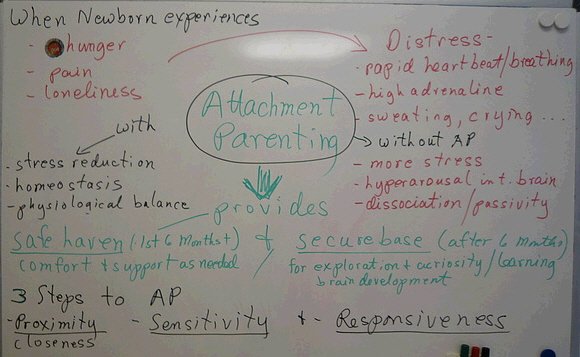 When Newborn experiences
- hunger
- pain
- loneliness
Distress-
- rapid heartbeat/breathing
- high adrenaline
- sweating, crying ...
Attachment
Parenting
with
- stress reduction
- homeostasis
- physiological balance
without AP
- more stress
- hyperarousal in t. brain
- dissociation/passivity
provides
safe haven (1st 6 months+) & secure base (after 6 mnths)
comfort + support as needed
for exploration + curiosity/learning
brain development
3 Steps to AP
- Proximity - Sensitivity + - Responsiveness
closeness